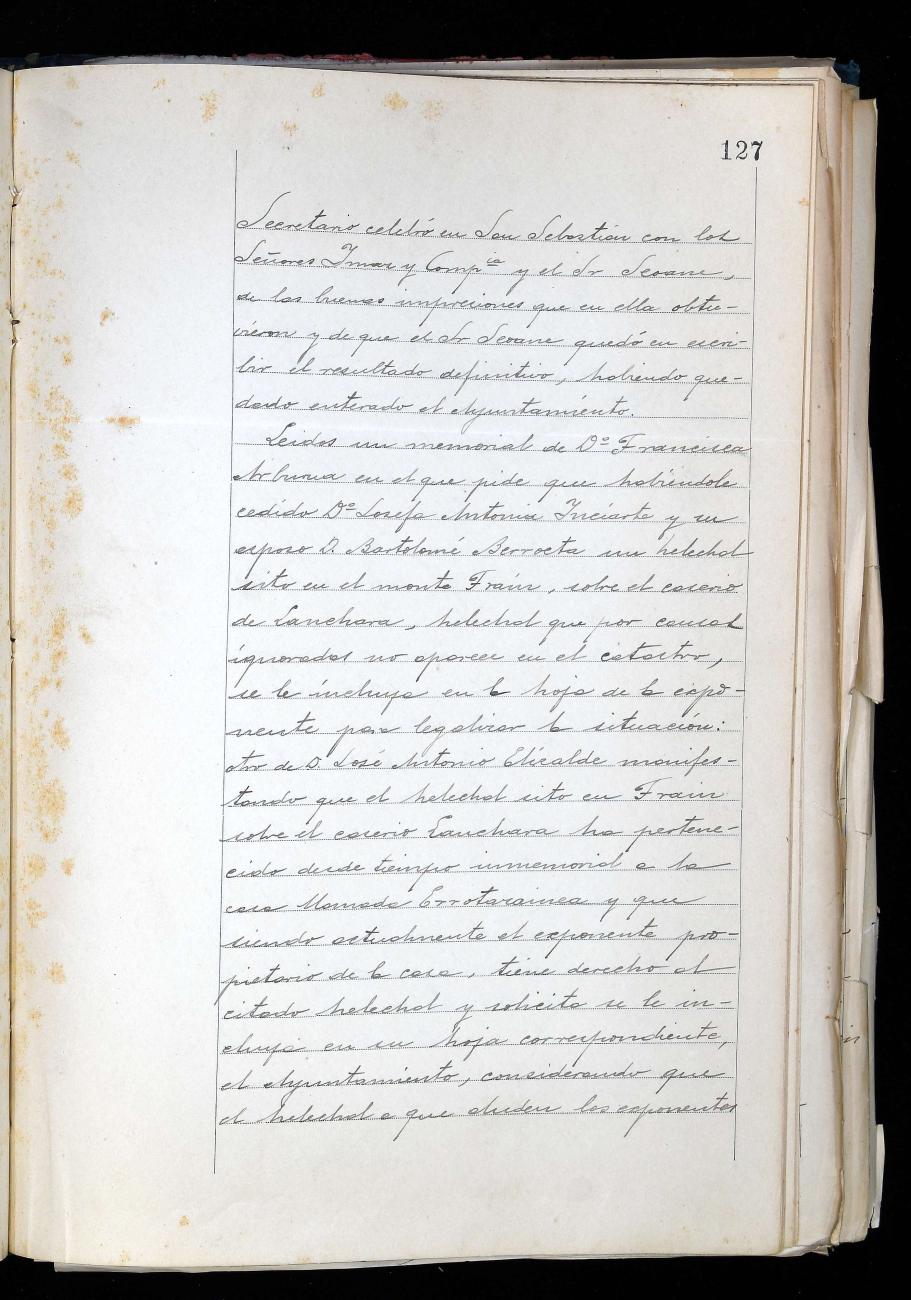 127
Secretario celebró en San Sebastián con los
Señores Imaz y Comp.ia y el Sr Seoane,
de las buenas impresiones que en ella obtu-
vieron y de que el Sr Seoane quedó en escri-
bir el resultado definitivo, habiendo que-
dado enterado el Ayuntamiento.
Leidos un memorial de Dª Francisca
Arburua en el que pide que habiéndole
cedido Dª Josefa Antonia Inciarte y su
esposo D. Bartolomé Berroeta un helechal
sito en el monte Frain, sobre el caserio
de Lanchara, helechal que por causas
ignoradas no aparece en el catastro,
se le incluya en la hoja de la expo-
nente para legalizar la situación:
otro de D. José Antonio Elicalde manifes-
tando que el helechal sito en Frain
sobre el caserio Lanchara ha pertene-
cido desde tiempo inmemorial a la
casa llamada Errotarainea y que
siendo actualmente el exponente pro-
pietario de la casa, tiene derecho al
citado helechal y solicita se le in-
cluya en su hoja correspondiente,
el Ayuntamiento, considerando que
el helechal a que aluden los exponentes